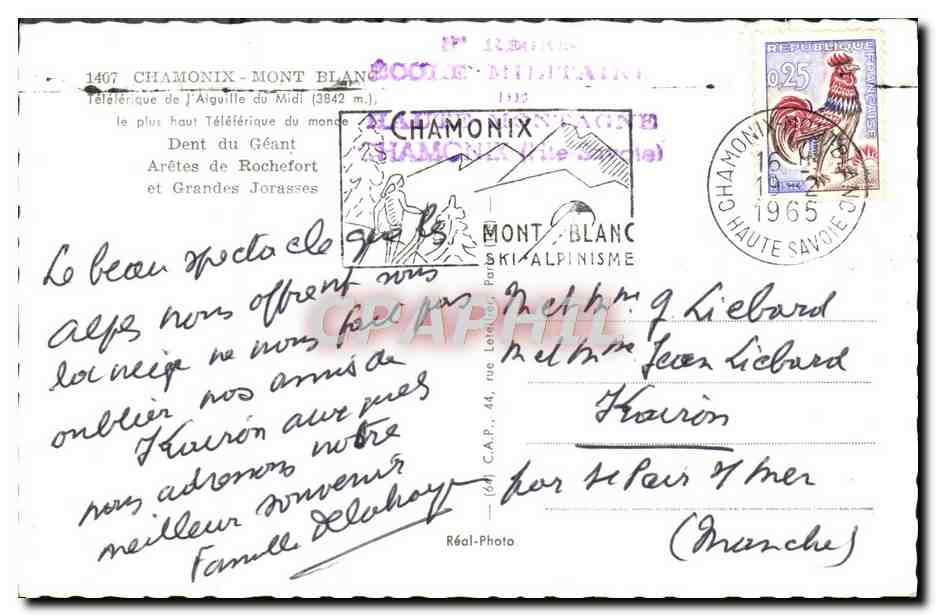 1407 CHAMONIX - MONT BLANC
Téléférique de l'Aiguille du Midi (3842 m.),
le plus haut Téléférique du monde
Dent du Géant
Arêtes de Rochefort
et Grandes Jorasses
ÉCOLE MILITAIRE
DE
HAUTE MONTAGNE
CHAMONIX (Hte Savoie)
CHAMONIX
MONT BLANC
SKI-ALPINISME
REPUBLIQUE
FRANÇAISE
0,25
CHAMONIX MONT BLANC
16 H
19-2
1965
HAUTE SAVOIE
Le beau spectacle que les
alpes nous offrent sous
la neige ne nous fait pas
oublier nos amis de
Kairon auxquels
nous adressons notre
meilleur souvenir
Famille Delahaye
M et Mme J Liebard
M et Mme Jean Liebard
Kairon
par St Pair s/ Mer
(Manche)
(64) C.A.P., 44, rue Letellier, Paris
Réal-Photo
CPAPHIL